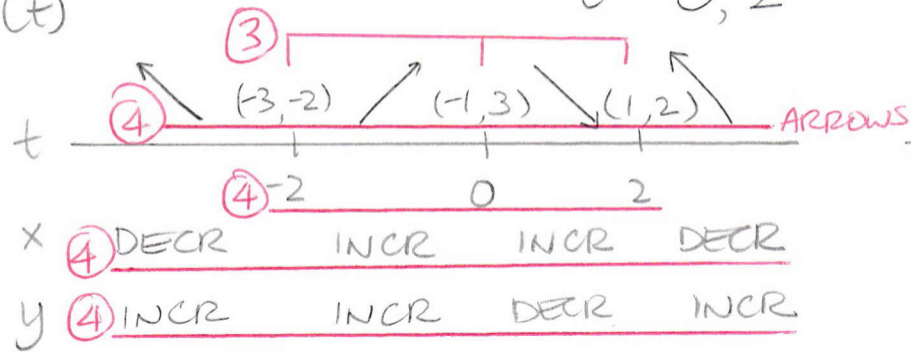 (t)
③
(-3,-2) (-1,3) (1,2)
④ ARROWS
t
④ -2 0 2
x ④ DECR INCR INCR DECR
y ④ INCR INCR DECR INCR